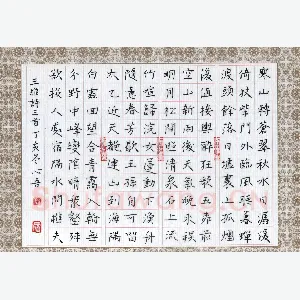 寒山轉蒼翠秋水日潺湲
倚杖柴門外臨風聽暮蟬
渡頭餘落日墟裏上孤煙
復值接輿醉狂歌五柳前
空山新雨後天氣晚來秋
明月松間照清泉石上流
竹喧歸浣女蓮動下漁舟
隨意春芳歇王孫自可留
太乙近天都連山到海隅
白雲回望合青靄入看無
分野中峰變陰晴衆壑殊
欲投人處宿隔水問樵夫
王維詩三首丁亥冬心吾